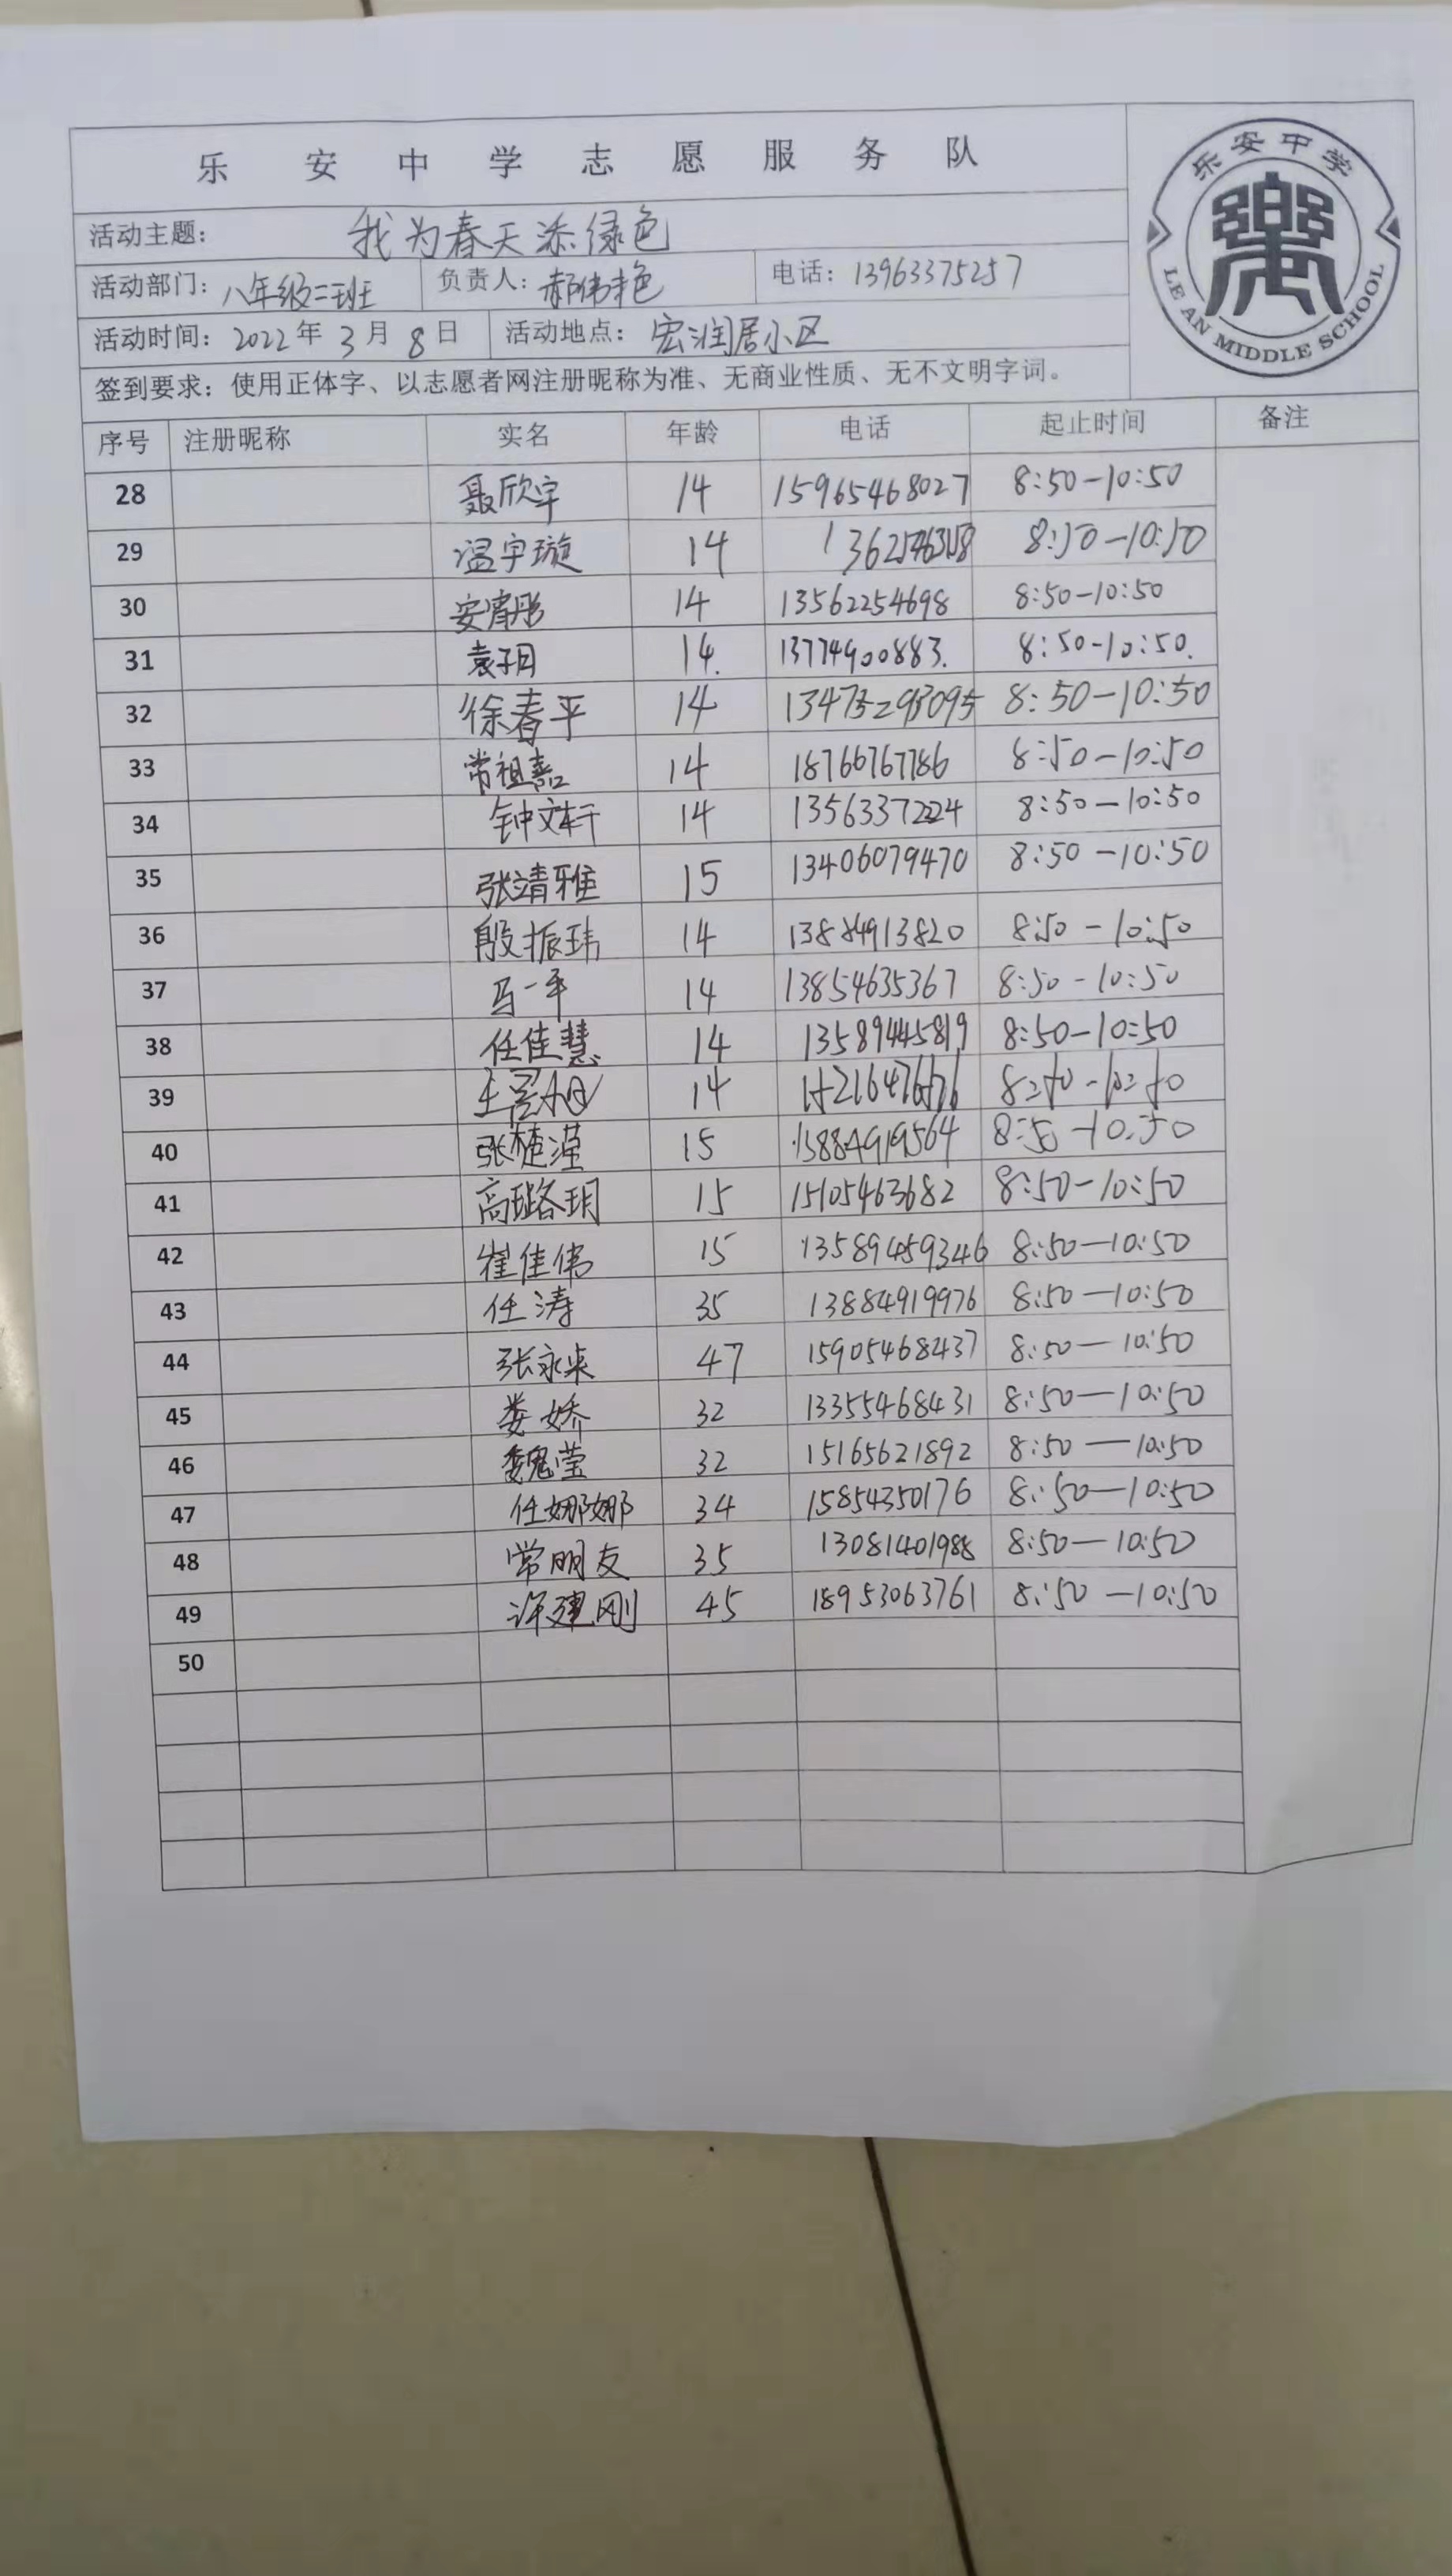 乐安中学志愿服务队
乐安中学
樂
LE AN MIDDLE SCHOOL
活动主题: 我为春天添绿色
活动部门: 八年级二班 负责人: 郝伟艳 电话: 13963375257
活动时间: 2022年3月8日 活动地点: 宏润居小区
签到要求: 使用正体字、以志愿者网注册昵称为准、无商业性质、无不文明字词。
序号 注册昵称 实名 年龄 电话 起止时间 备注
28 聂欣宇 14 15965468027 8:50-10:50
29 温宇璇 14 8:50-10:50
30 安 彤 14 13562254698 8:50-10:50
31 袁子月 14. 13774900883. 8:50-10:50.
32 徐春平 14 8:50-10:50
33 常祖嘉 14 18766767786 8:50-10:50
34 钟文轩 14 13563372224 8:50-10:50
35 张靖雅 15 13406079470 8:50-10:50
36 殷振玮 14 13884913820 8:50-10:50
37 马一平 14 13854635367 8:50-10:50
38 任佳慧 14 13589445819 8:50-10:50
39 王 14 8:50-10:50
40 张楚滢 15 15884919564 8:50-10:50
41 高璐玥 15 15105463682 8:50-10:50
42 崔佳伟 15 13589459346 8:50-10:50
43 任涛 35 13884919976 8:50-10:50
44 张永 47 15905468437 8:50-10:50
45 娄娇 32 13355468431 8:50-10:50
46 魏莹 32 15165621892 8:50-10:50
47 任娜娜 34 15854350176 8:50-10:50
48 常朋友 35 13081401988 8:50-10:50
49 许建刚 45 18953063761 8:50-10:50
50